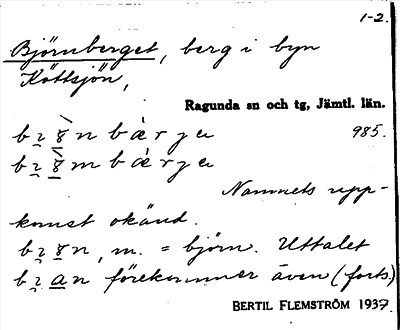 1-2.
Björnberget, berg i byn
Köttsjön,
Ragunda sn och tg, Jämtl. län.
985.
Namnets upp-
komst okänd.
m. = björn. Uttalet
förekommer även (forts.)
BERTIL FLEMSTRÖM 1937.